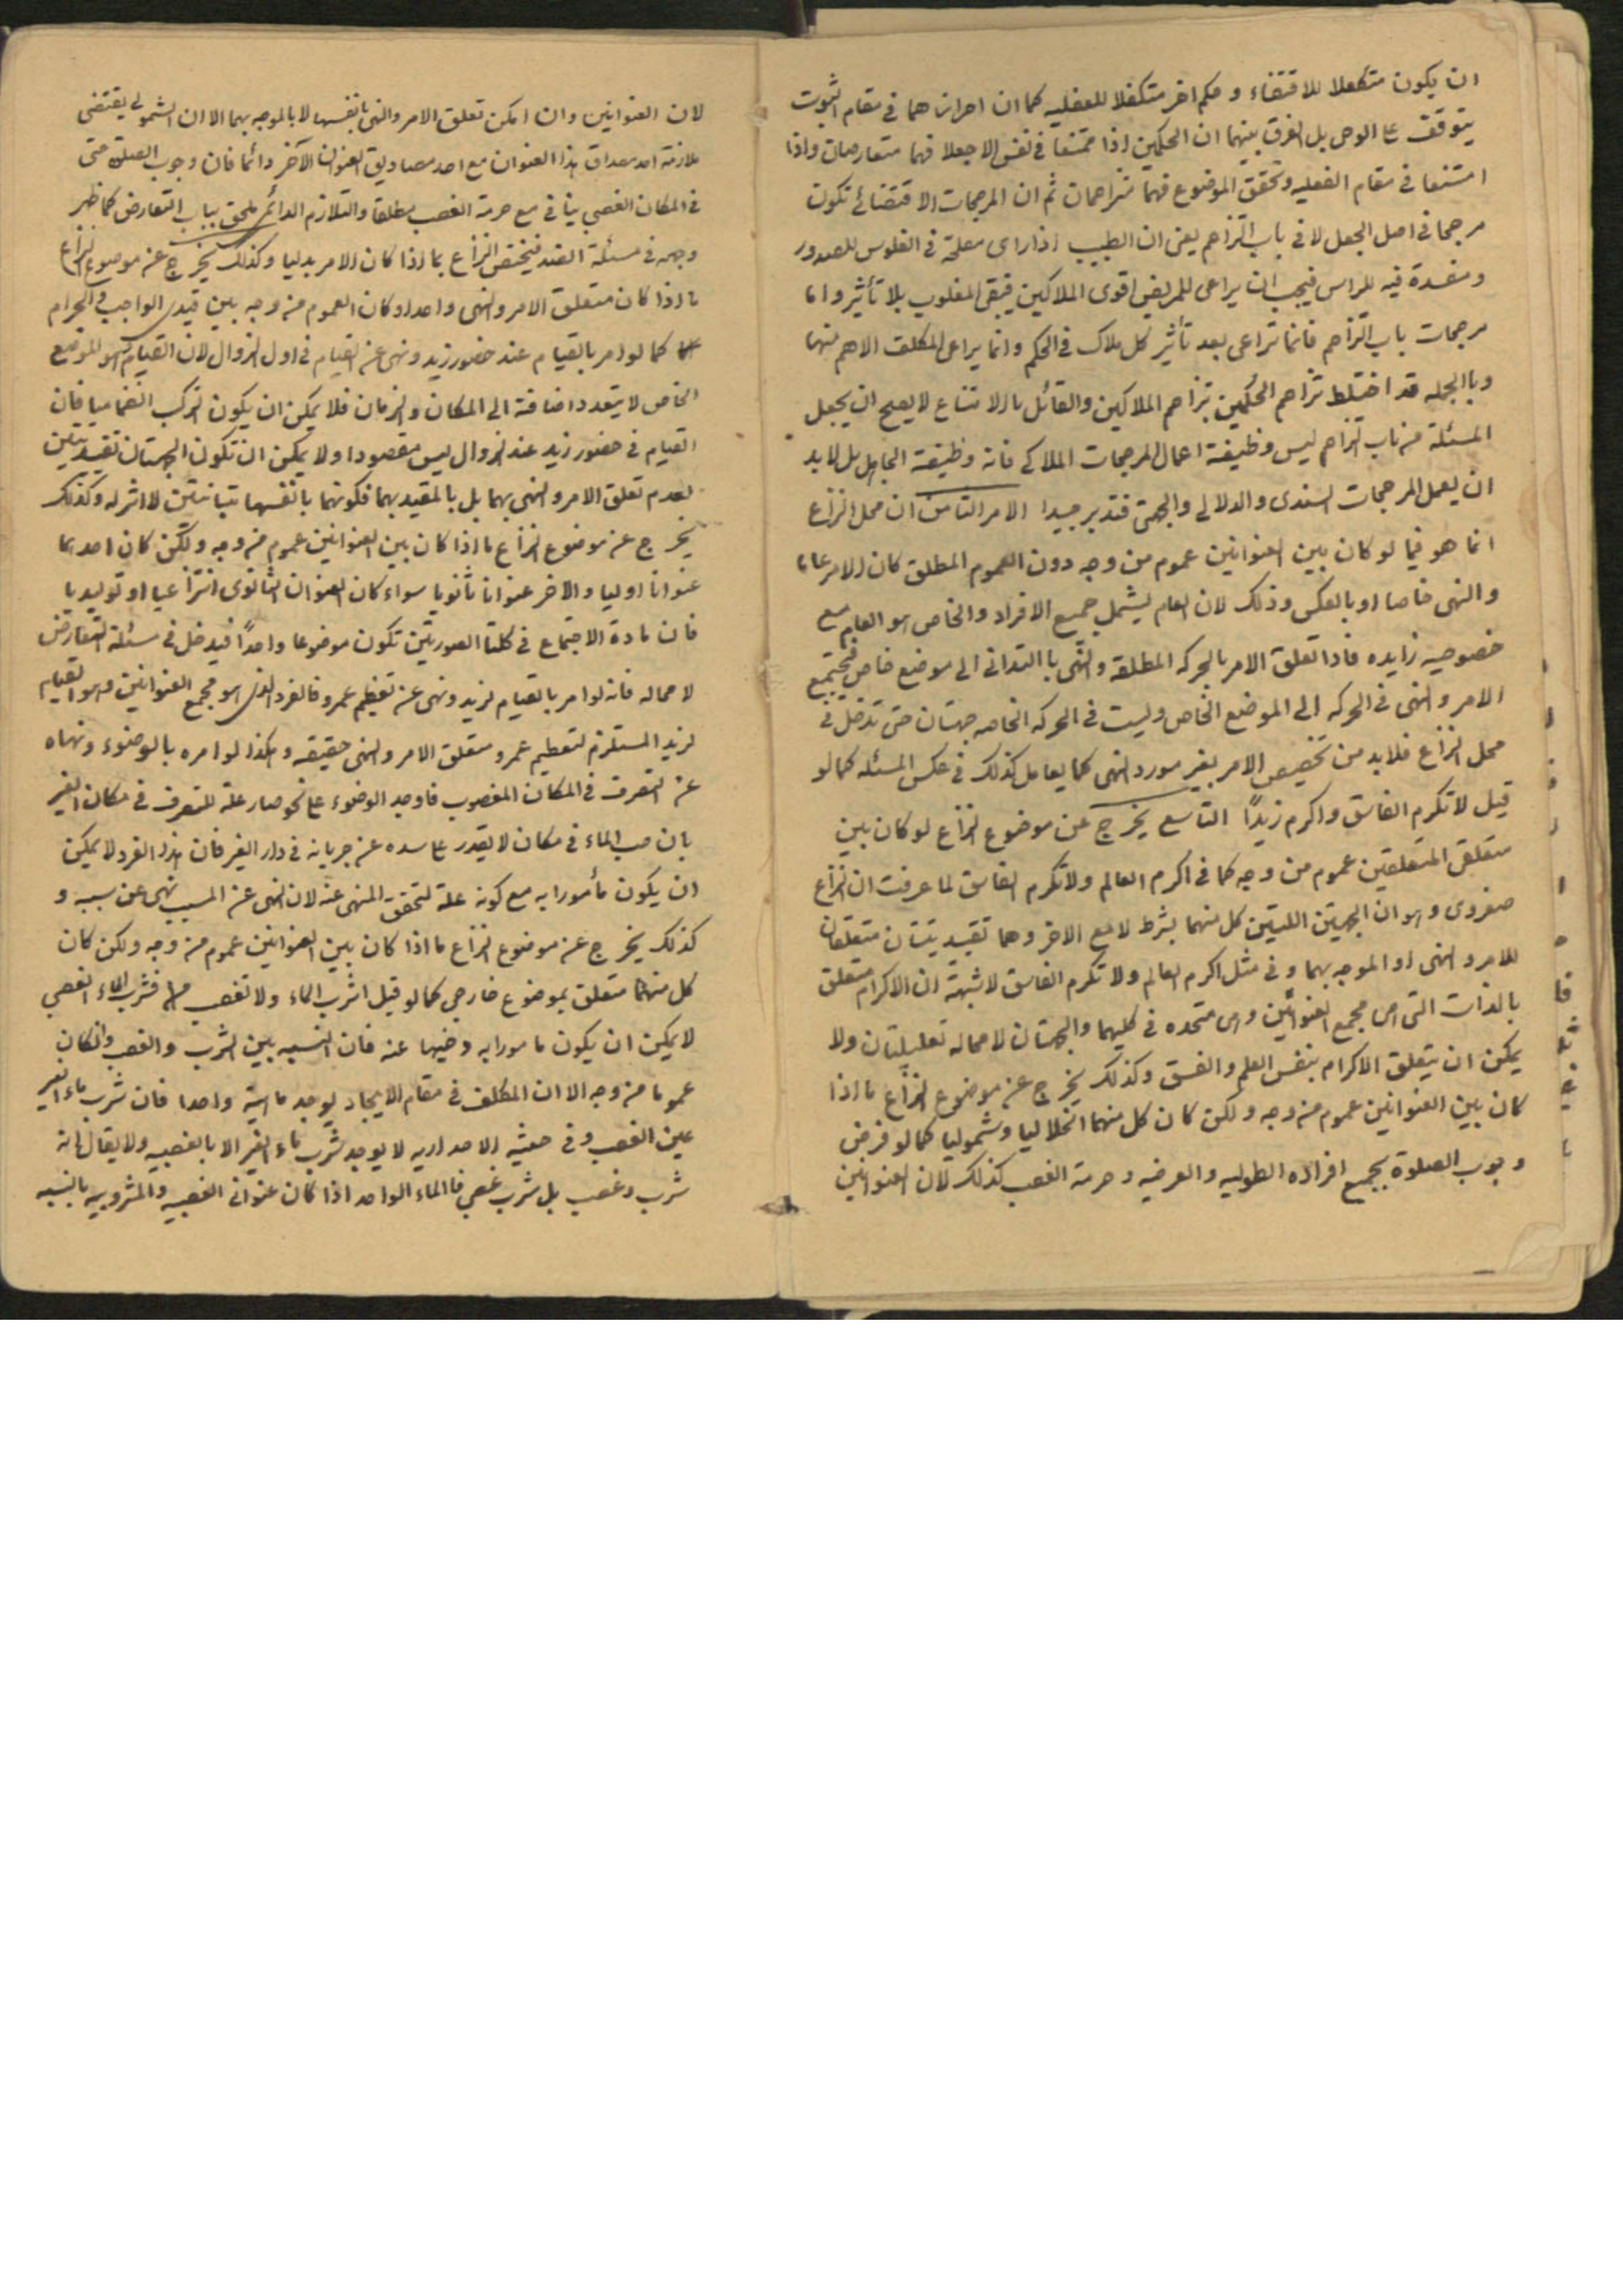 ان يكون متكفلا للاقتضاء و حكم اخر متكفلا للفعليه كما ان احراز هما فى مقام الثبوت
يتوقف على الوحى بل الفرق بينهما ان الحكمين اذا امتنعا فى نفس الجعلا فهما متعارضان واذا
امتنعا فى مقام الفعليه وتحقق الموضوع فهما متزاحمان ثم ان المرجحات الاقتضائى تكون
مرجحا فى اصل الجعل لا فى باب التزاحم يعنى ان الطبيب اذا راى مصلحة فى الفلوس للصدور
ومفسدة فيه للراس فيجب ان يراعى للمريض اقوى الملاكين فيبقى المغلوب بلا تأثير واما
مرجحات باب التزاحم فانما تراعى بعد تأثير كل ملاك فى الحكم وانما يراعى المكلف الاهم منهما
وبالجمله قد اختلط تزاحم الحكمين بتزاحم الملاكين والقائل بالامتناع لا يصح ان يجعل
المسئلة من باب التزاحم ليس وظيفة اعمال المرجحات الملاكى فانه وظيفة الجاعل بل لابد
ان يعمل المرجحات السندى والدلالى والجهتى فتدبر جيدا الامر الثامن ان محل النزاع
انما هو فيما لو كان بين العنوانين عموم من وجه دون العموم المطلق كان الامر عاما
والنهى خاصا او بالعكس وذلك لان العام يشمل جميع الافراد والخاص هو العام مع
خصوصيه زايده فاذا تعلق الامر بالحركه المطلقه والنهى بالتدانى الى موضع خاص فيجتمع
الامر والنهى فى الحركه الى الموضع الخاص وليست فى الحركه الخاصه جهتان حتى تدخل فى
محل النزاع فلابد من تخصيص الامر بغير مورد النهى كما يعامل كذلك فى عكس المسئله كما لو
قيل لا تكرم الفاسق واكرم زيدًا التاسع يخرج عن موضوع النزاع لو كان بين
متعلق المتعلقين عموم من وجه كما فى اكرم العالم ولا تكرم الفاسق لما عرفت ان النزاع
صغروى وهو ان الجهتين اللتين كل منهما بشرط لا مع الاخر وهما تقييديتان متعلقان
للامر والنهى او الموجه بهما وفى مثل اكرم العالم ولا تكرم الفاسق لا شبهة ان الاكرام متعلق
بالذات التى هى مجمع العنوانين وهى متحده فى كليهما والجهتان لا محاله تعليليتان ولا
يمكن ان يتعلق الاكرام بنفس العلم والفسق وكذلك يخرج عن موضوع النزاع ما اذا
كان بين العنوانين عموم من وجه ولكن كان كل منهما انحلاليا وشموليا كما لو فرض
وجوب الصلوة بجميع افراده الطوليه والعرضيه وحرمة الغصب كذلك لان العنوانين
لان العنوانين وان امكن تعلق الامر والنهى بانفسها لا بالموجه بهما الا ان الشمولى يقتضى
ملازمة احد مصداق هذا العنوان مع احد مصاديق العنوان الآخر دائما فان وجوب الصلوة حتى
فى المكان الغصبى ينافى مع حرمة الغصب مطلقا والتلازم الدائمى يلحق بباب التعارض كما ظهر
وجهه فى مسئلة الضد فيختص النزاع بما اذا كان الامر بدليا وكذلك يخرج عن موضوع النزاع
ما اذا كان متعلق الامر والنهى واحدا وكان العموم من وجه بين قيدى الواجب والحرام
كما لو امر بالقيام عند حضور زيد ونهى عن القيام فى اول الزوال لان القيام هو الموضع
الخاص لا يتعدد اضافته الى المكان والزمان فلا يمكن ان يكون التركب انضماميا فان
القيام فى حضور زيد عند الزوال ليس مقصودا ولا يمكن ان تكون الجهتان تقييديتين
لعدم تعلق الامر والنهى بهما بل بالمقيد بهما فكونهما بانفسهما متباينتين لا اثر له وكذلك
يخرج عن موضوع النزاع ما اذا كان بين العنوانين عموم من وجه ولكن كان احدهما
عنوانا اوليا والآخر عنوانا ثانويا سواء كان العنوان الثانوى انتزاعيا او توليديا
فان مادة الاجتماع فى كلتا الصورتين تكون موضوعا واحدًا فيدخل فى مسئلة التعارض
لا محاله فانه لو امر بالقيام لزيد ونهى عن تعظيم عمرو فالفرد الذى هو مجمع العنوانين وهو القيام
لزيد المستلزم لتعظيم عمرو متعلق الامر والنهى حقيقه وهكذا لو امره بالوضوء ونهاه
عن التصرف فى المكان المغصوب فاوجد الوضوء على نحو صار علة للتصرف فى مكان الغير
بان صب الماء فى مكان لا يقدر على سده عن جريانه فى دار الغير فان هذا الفرد لا يمكن
ان يكون مأمورا به مع كونه علة لتحقق المنهى عنه لان النهى عن المسبب نهى عن سببه و
كذلك يخرج عن موضوع النزاع ما اذا كان بين العنوانين عموم من وجه ولكن كان
كل منهما متعلق بموضوع خارجى كما لو قيل اشرب الماء ولا تغصب فشرب الماء الغصبى
لا يمكن ان يكون مامورا به ومنهيا عنه فان النسبه بين الشرب والغصب وانكان
عموما من وجه الا ان المكلف فى مقام الايجاد يوجد ماهية واحدا فان شرب ماء الغير
عين الغصب وفى حقيته الاصداريه لا يوجد شرب ماء الغير الا بالغصبيه ولا يقال انه
شرب وغصب بل شرب غصبى فالماء الواحد اذا كان عنوانى الغصبيه والمشروبيه بالنسبه